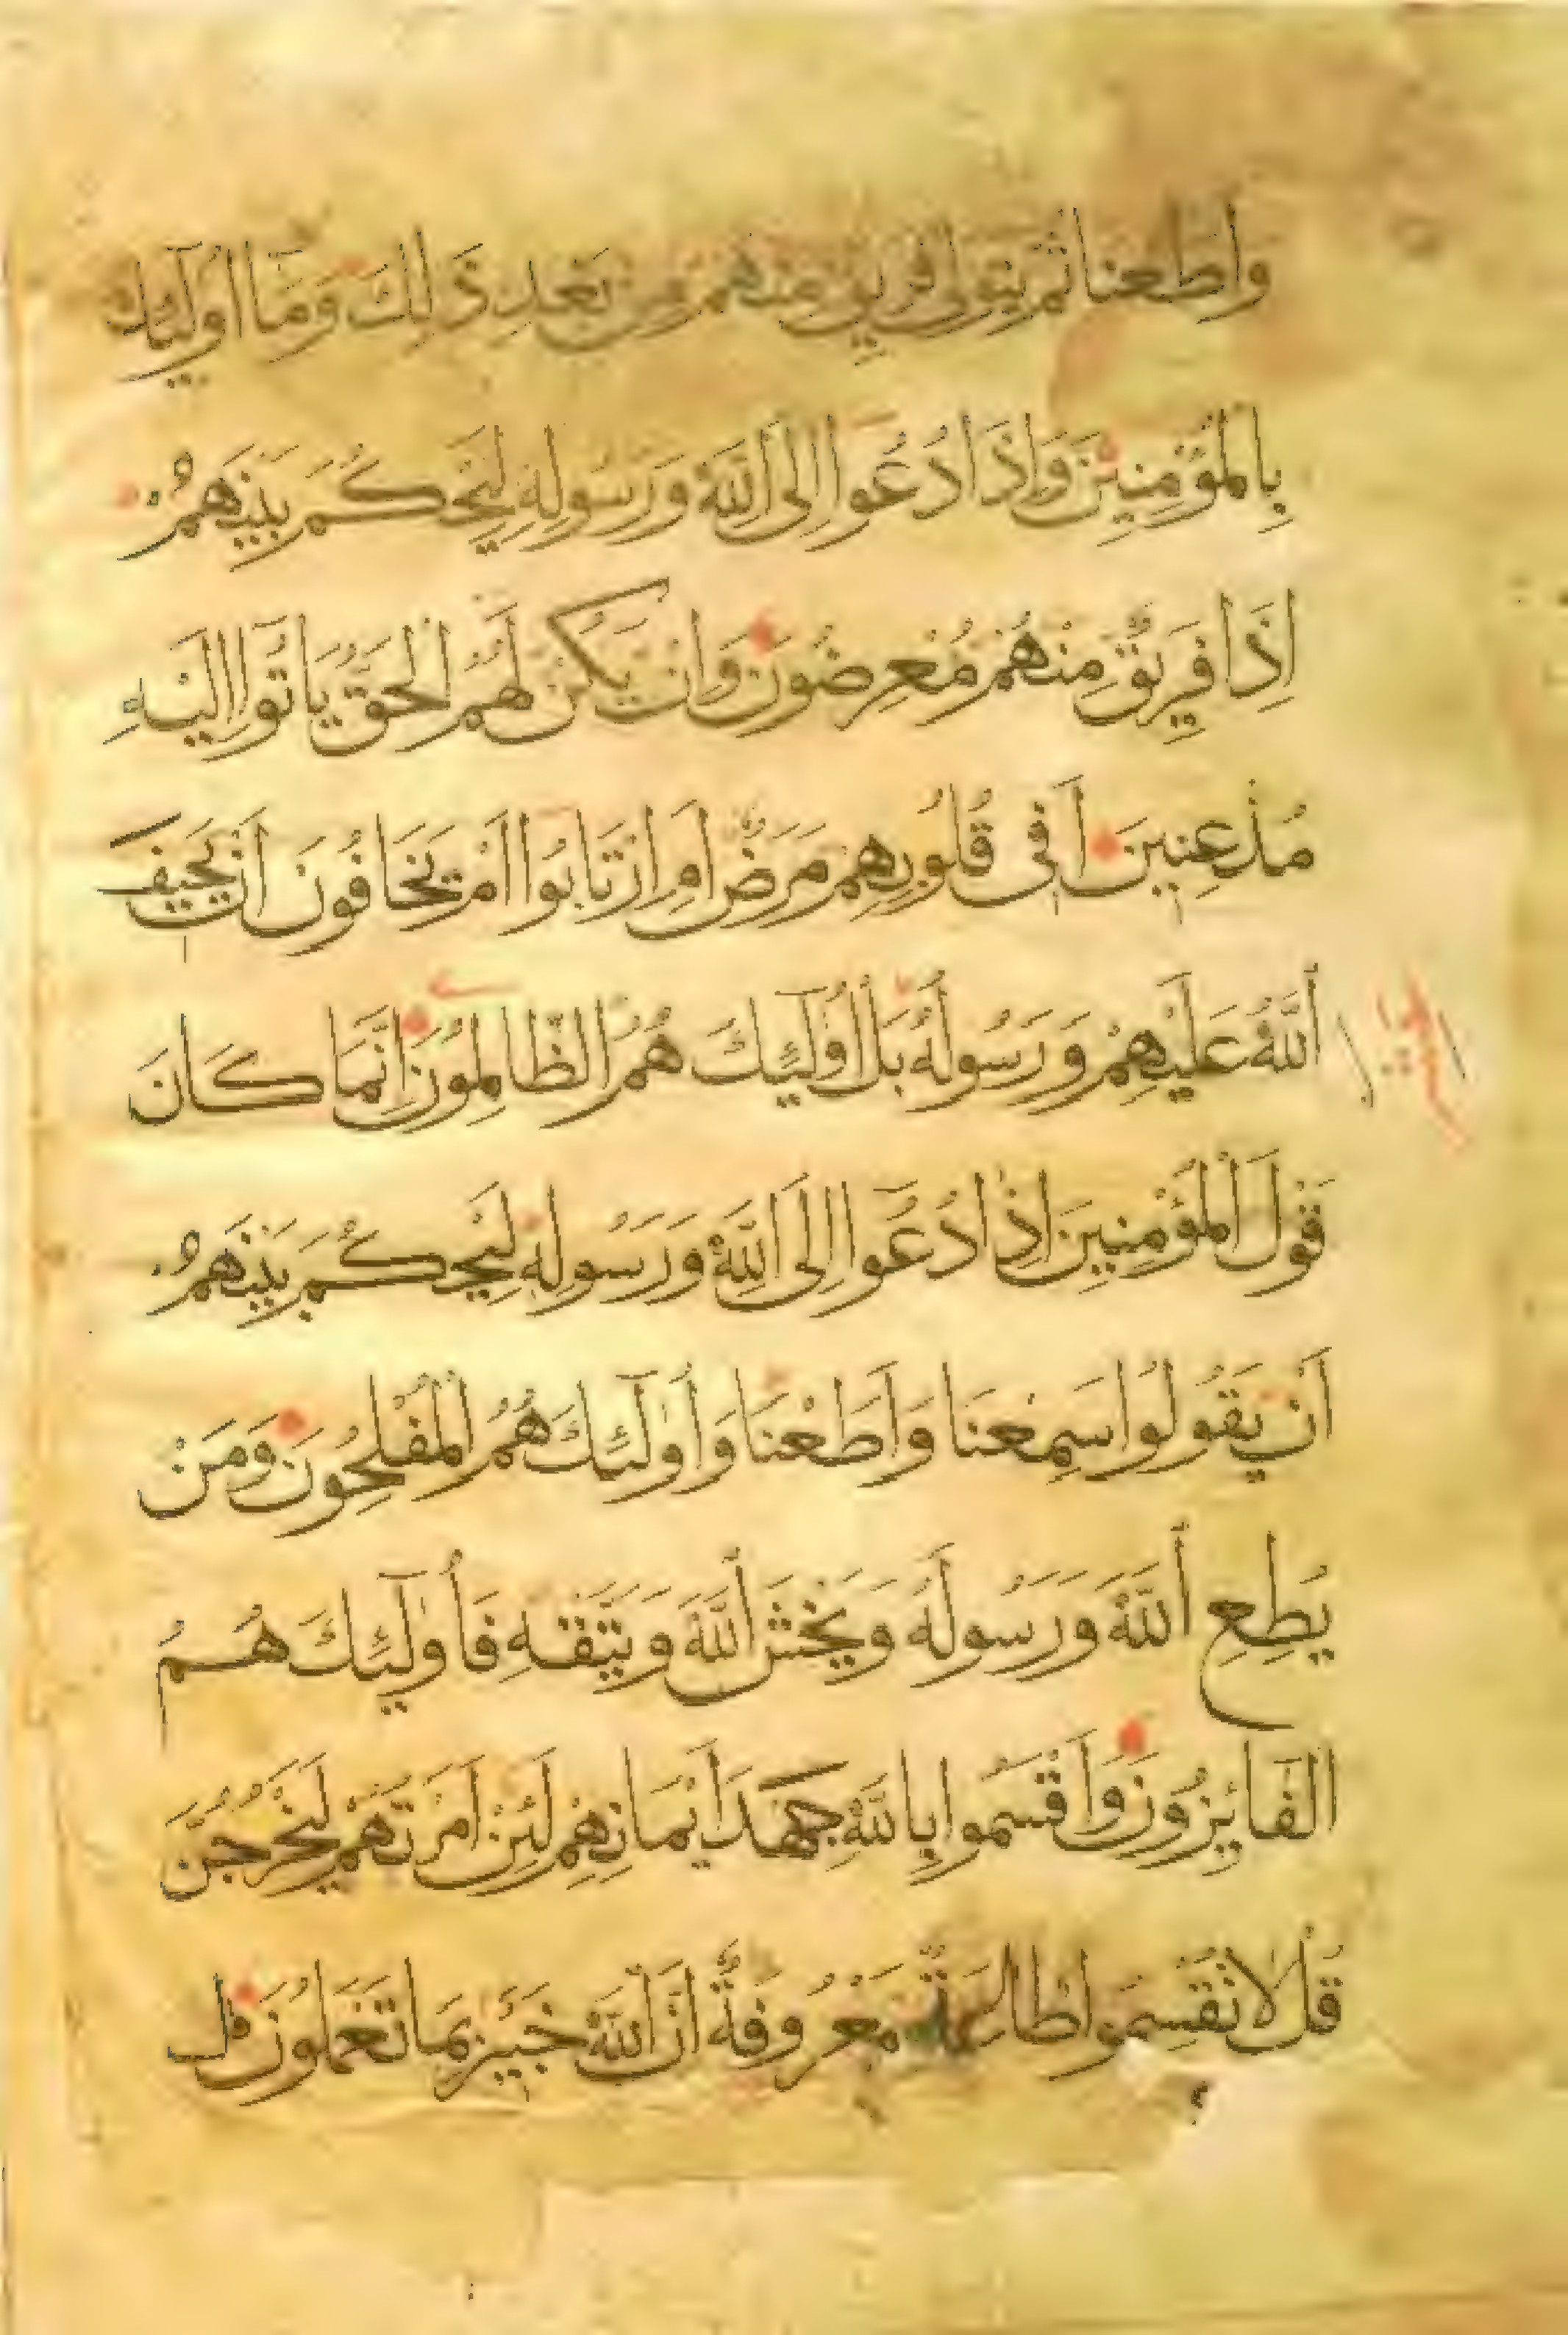 واطعنا ثم يتولى فريق منهم من بَعْدِ ذَالِكَ وَمَا اُولَٓئِكَ
بِالمُؤْمِنِيْنَ وَاِذَا دُعُوا اِلَى اللّٰهِ وَرَسُولِهِ لِيَحْكُمَ بَيْنَهُمْ
اِذَا فَرِيْقٌ مِنْهُمْ مُعْرِضُونَ وَاِنْ يَكُنْ لَهُمُ الْحَقُّ يَاتُوا اِلَيْهِ
مُذْعِنِينَ اَفِى قُلُوبِهِمْ مَرَضٌ اَمِ ارْتَابُوا اَمْ يَخَافُونَ اَنْ يَحِيفَ
اللّٰهُ عَلَيْهِمْ وَرَسُولُهُ بَلْ اُولَٓئِكَ هُمُ الظَّالِمُونَ اِنَّمَا كَانَ
قَوْلَ الْمُؤْمِنِينَ اِذَا دُعُوا اِلَى اللّٰهِ وَرَسُولِهِ لِيَحْكُمَ بَيْنَهُمْ
اَنْ يَقُولُوا سَمِعْنَا وَاَطَعْنَا وَاُولَٓئِكَ هُمُ الْمُفْلِحُونَ وَمَنْ
يُطِعِ اللّٰهَ وَرَسُولَهُ وَيَخْشَ اللّٰهَ وَيَتَّقْهِ فَاُولَٓئِكَ هُمُ
الْفَائِزُونَ وَاَقْسَمُوا بِاللّٰهِ جَهْدَ اَيْمَانِهِمْ لَئِنْ اَمَرْتَهُمْ لَيَخْرُجُنَّ
قُلْ لَا تُقْسِمُوا طَاعَةٌ مَعْرُوفَةٌ اِنَّ اللّٰهَ خَبِيرٌ بِمَا تَعْمَلُونَ قل